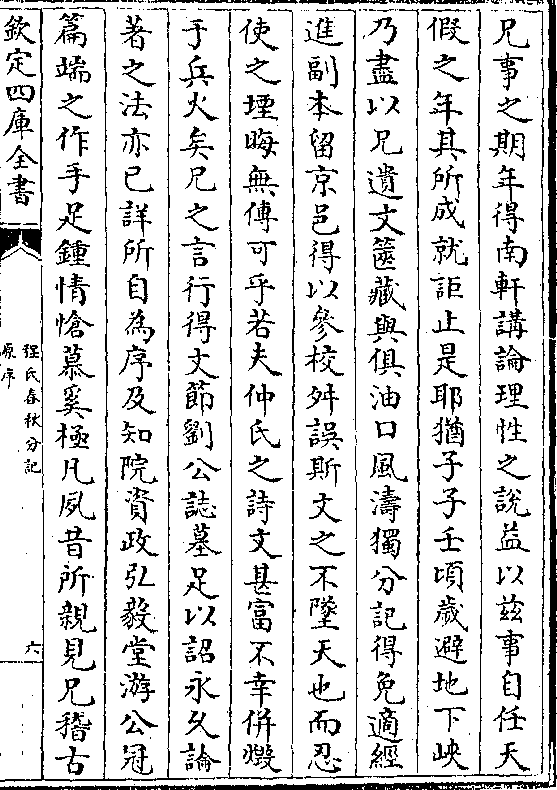 兄事之期年得南軒講論理性之說益以茲事自任天
假之年其所成就詎止是耶猶子子壬頃歲避地下峽
乃盡以兄遺文篋藏與俱油口風濤獨分記得免適經
進副本留京邑得以參校舛誤斯文之不墜天也而忍
使之堙晦無傳可乎若夫仲氏之詩文甚富不幸併燬
于兵火矣兄之言行得文節劉公誌墓足以詔永久論
著之法亦已詳所自為序及知院資政弘毅堂游公冠
篇端之作手足鍾情愴慕奚極凡夙昔所親見兄稽古
欽定四庫全書
程氏春秋分記
原序
六